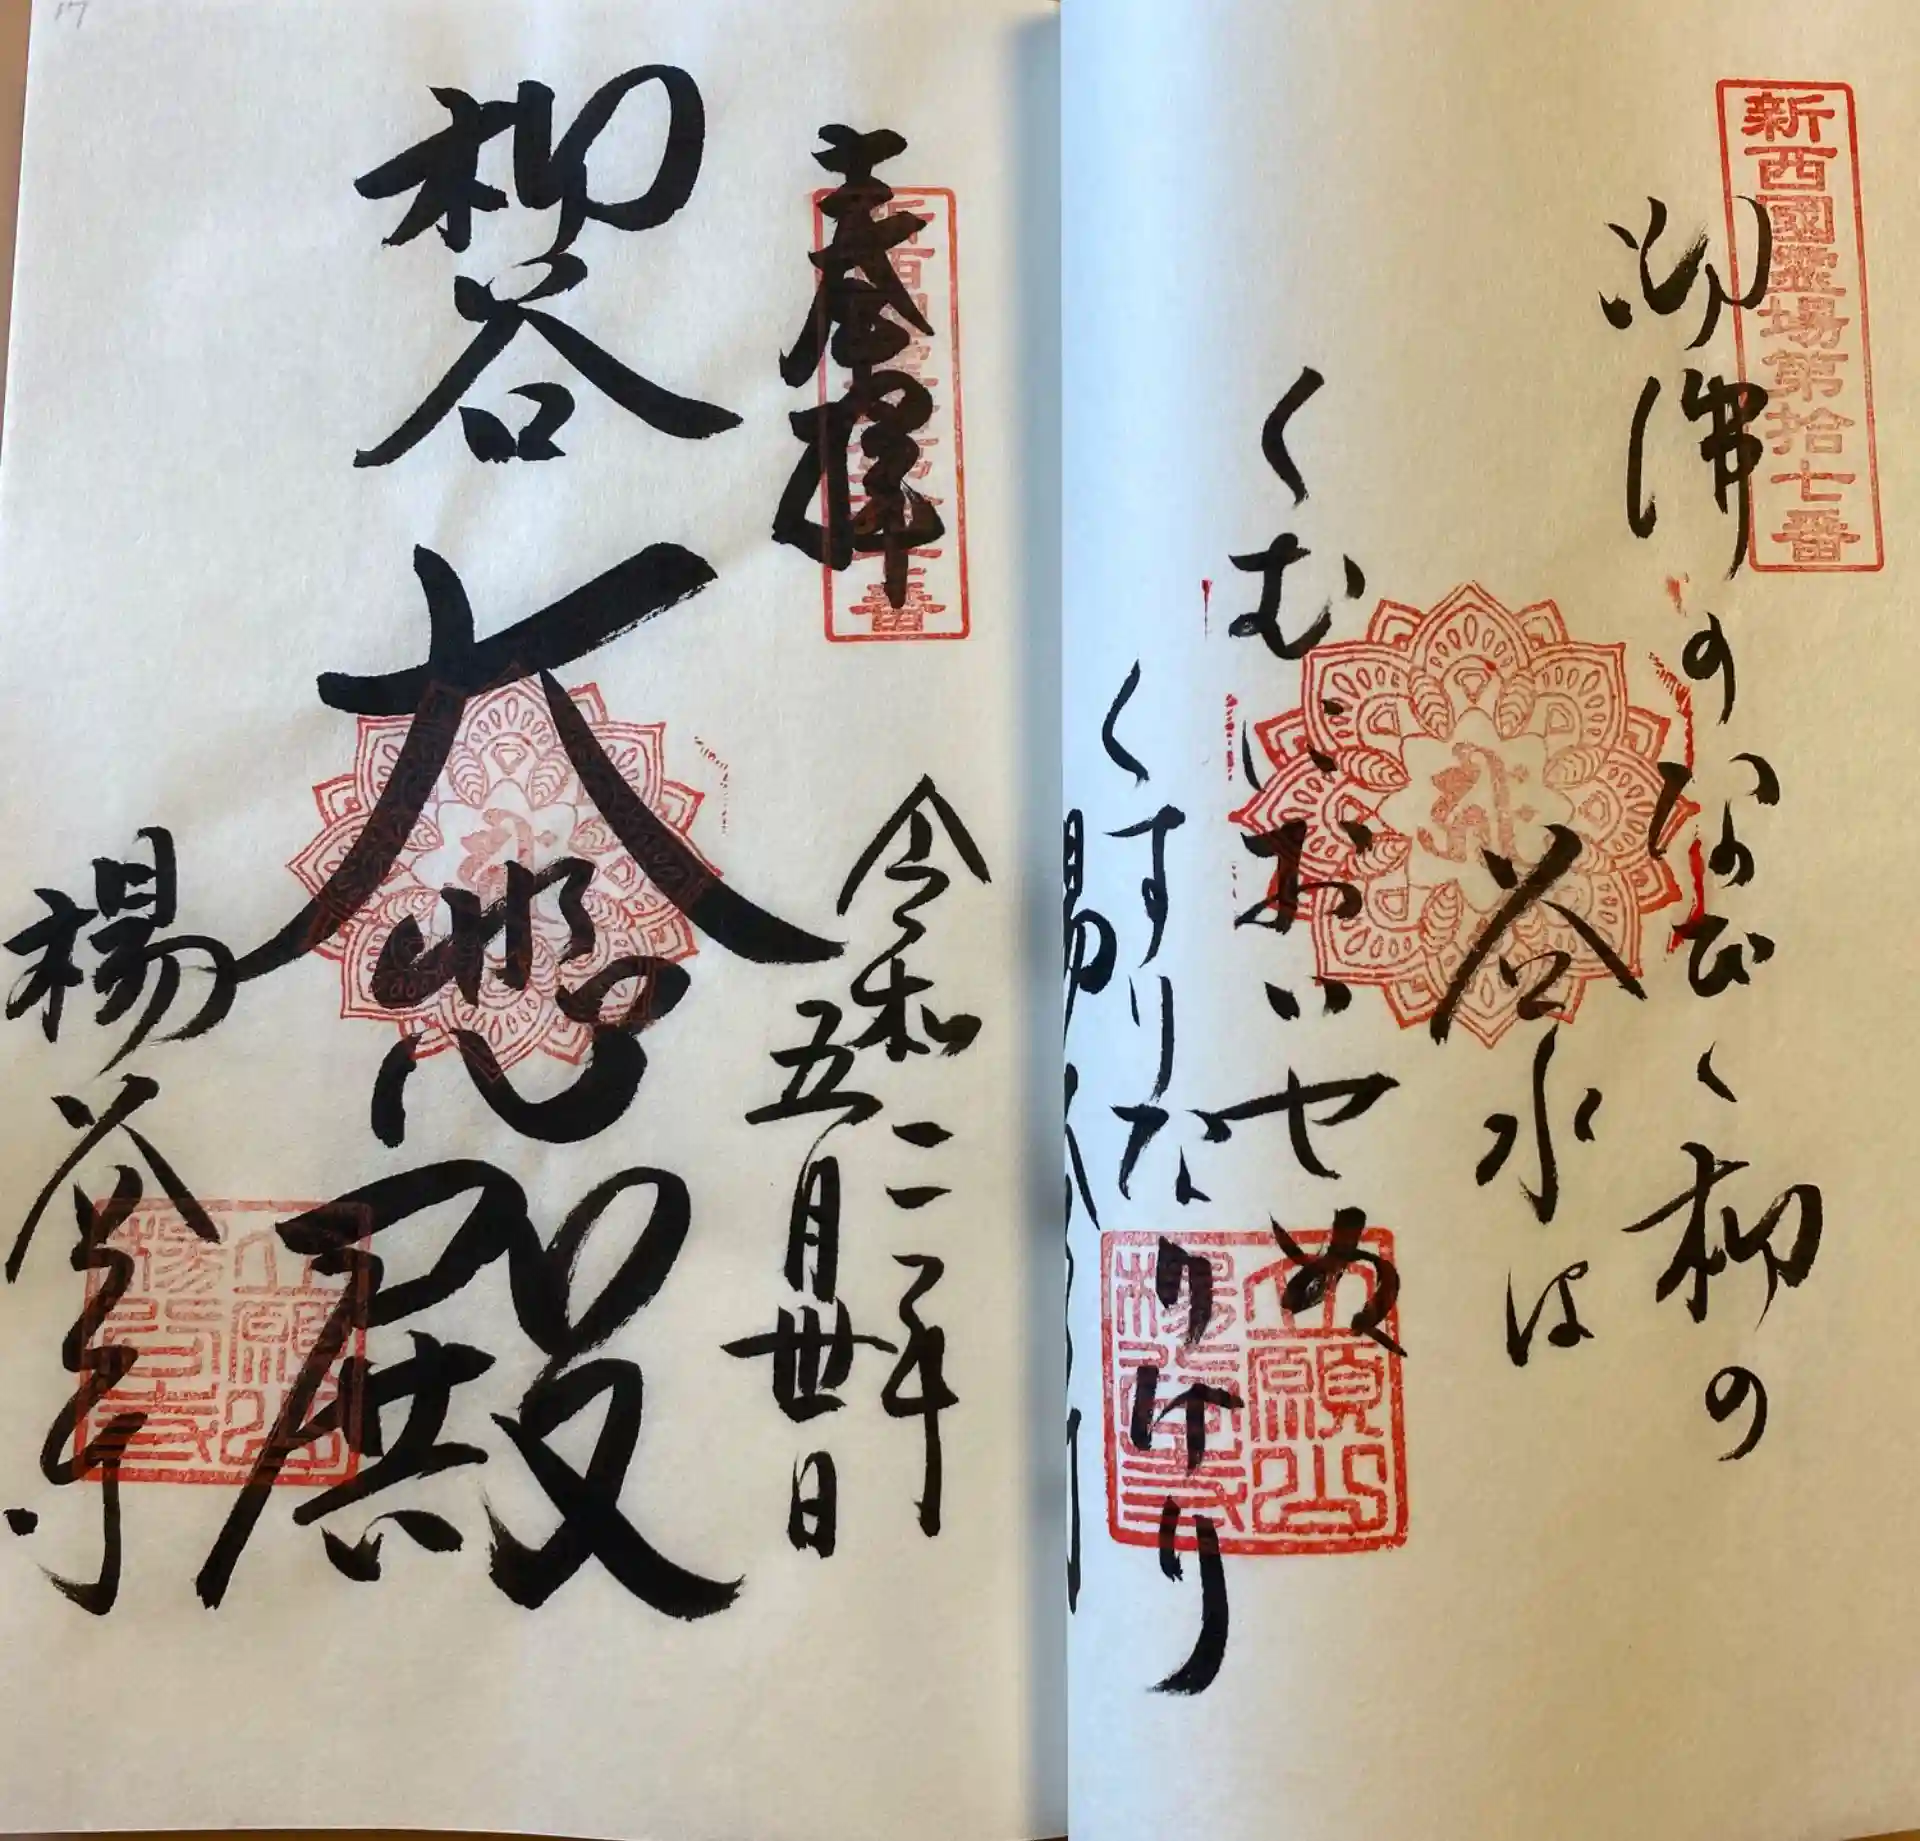 新西國霊場第拾七番
佛の
柳の
谷水は
くむにおいせぬ
くすりなりけり
立願山
楊谷寺
17
奉拝
新西國霊場第拾七番
令和二年
五月卅日
柳谷大悲殿
楊谷寺
立願山
楊谷寺